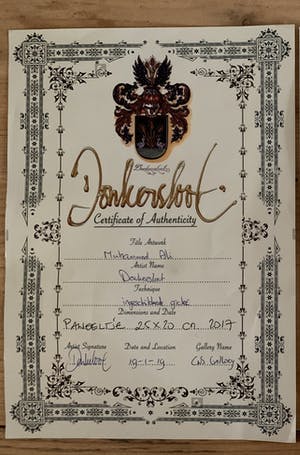 Donkersloot
Donkersloot
Certificate of Authenticity
Title Artwork
Muhammed Ali
Artist Name
Donkersloot
Technique
Dimensions and Date
PANEELTJE 25X20 cm 2017
Artist Signature Date and Location Gallery Name
Donkersloot 19-1-19 Gallery